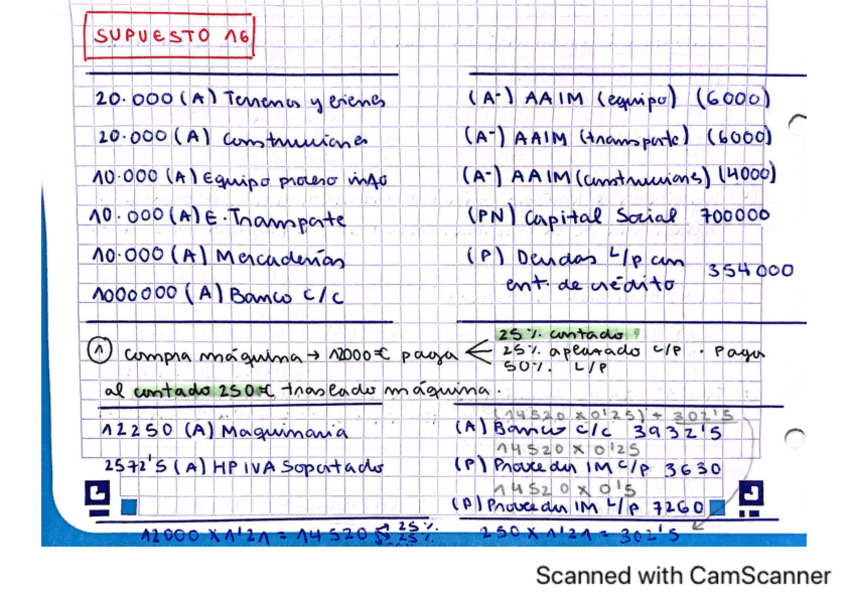 SUPUESTO 16
20.000 (A) Terrenos y bienes
(A-) AAIM (equipo) (6000)
20.000 (A) Construcciones
(A-) AAIM (transporte) (6000)
10.000 (A) Equipo proceso info
(A-) AAIM (construcciones) (4000)
10.000 (A) E. Transporte
(PN) Capital Social 700000
10.000 (A) Mercaderías
(P) Deudas L/p con
ent. de crédito 354000
1000000 (A) Banco c/c
① compra máquina → 12000€ paga
25% contado
25% aplazado c/P . Paga
50% L/P
al contado 250€ traslado máquina.
(14520 x 0'25) + 302'5
12250 (A) Maquinaria
(A) Banco c/c 3932'5
14520 x 0'25
2572'5 (A) HP IVA Soportado
(P) Proveedor IM c/p 3630
14520 x 0'5
(P) Proveedor IM L/p 7260
12000 x 1'21 = 14520 25%.
25%.
250 x 1'21 = 302'5
Scanned with CamScanner